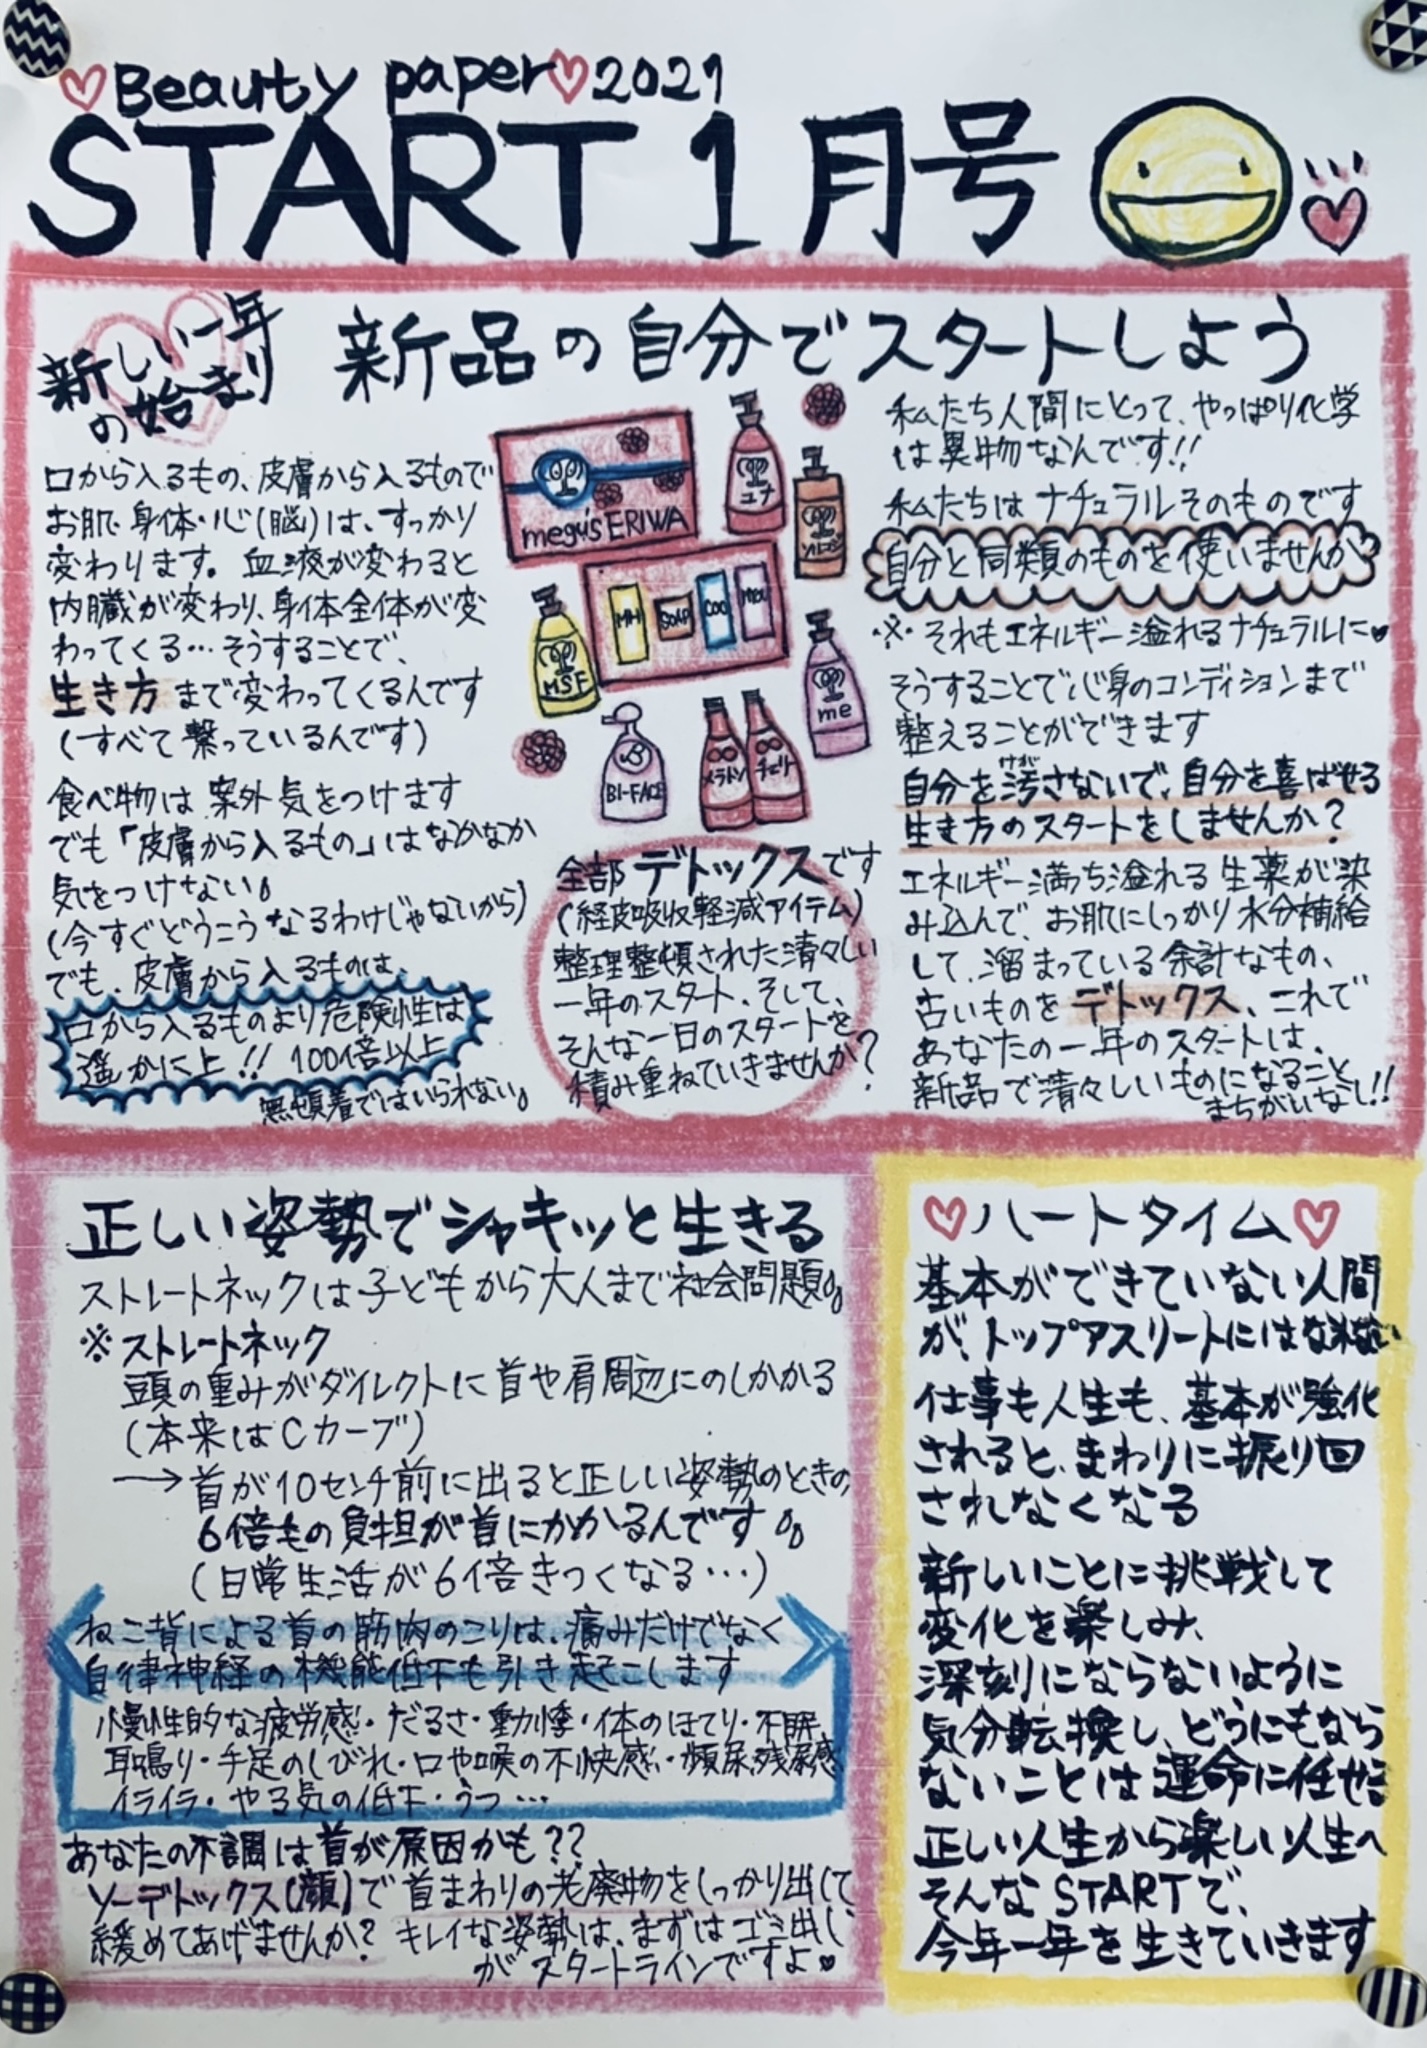 ♡Beauty paper♡2021
START 1月号
新しい一年
の始まり
新品の自分でスタートしよう
口から入るもの、皮膚から入るもので
お肌・身体・心(脳)は、すっかり
変わります。血液が変わると
内臓が変わり、身体全体が変
わってくる…そうすることで、
生き方まで変わってくるんです
(すべて繋っているんです)
食べ物は案外気をつけます
でも「皮膚から入るもの」はなかなか
気をつけない。
(今すぐどうこうなるわけじゃないから)
でも、皮膚から入るものは、
口から入るものより危険性は
遥かに上!! 100倍以上
無頓着ではいられない。
megu's ERIWA
ユナ
MH
SOAP
COO
MSF
me
BI-FACE
メラトン
チェリー
全部デトックスです
(経皮吸収軽減アイテム)
整理整頓された清々しい
一年のスタート、そして、
そんな一日のスタートを
積み重ねていきませんか?
私たち人間にとって、やっぱり化学
は異物なんです!!
私たちはナチュラルそのものです
自分と同類のものを使いませんか
※それもエネルギー溢れるナチュラルに♥
そうすることで心身のコンディションまで
整えることができます
自分を汚さないで、自分を喜ばせる
けが
生き方のスタートをしませんか?
エネルギー満ち溢れる生薬が染
み込んで、お肌にしっかり水分補給
して、溜まっている余計なもの、
古いものをデトックス、これで
あなたの一年のスタートは、
新品で清々しいものになること
まちがいなし!!
正しい姿勢でシャキッと生きる
ストレートネックは子どもから大人まで社会問題。
※ストレートネック
頭の重みがダイレクトに首や肩周辺にのしかかる
(本来はCカーブ)
→首が10センチ前に出ると正しい姿勢のときの
6倍もの負担が首にかかるんです。
(日常生活が6倍きつくなる…)
ねこ背による首の筋肉のこりは、痛みだけでなく
自律神経の機能低下も引き起こします
慢性的な疲労感・だるさ・動悸・体のほてり・不眠
耳鳴り・手足のしびれ・口や喉の不快感・頻尿残尿感
イライラ・やる気の低下・うつ…
あなたの不調は首が原因かも??
ソーデトックス(顔)で首まわりの老廃物をしっかり出して
緩めてあげませんか? キレイな姿勢は、まずはゴミ出し
がスタートラインですよ♥
♡ハートタイム♡
基本ができていない人間
が、トップアスリートにはなれない
仕事も人生も、基本が強化
されると、まわりに振り回
されなくなる
新しいことに挑戦して
変化を楽しみ、
深刻にならないように
気分転換し、どうにもなら
ないことは運命に任せる
正しい人生から楽しい人生へ
そんなSTARTで、
今年一年を生きていきます